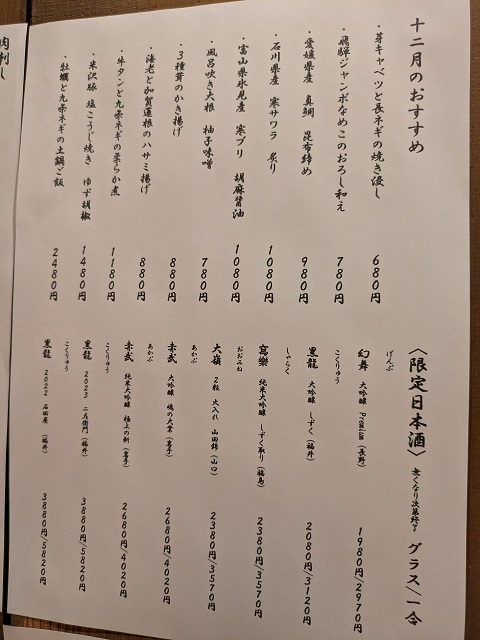 十二月のおすすめ
・芽キャベツと長ネギの焼き浸し 680円
・飛騨ジャンボなめこのおろし和え 780円
・愛媛県産 真鯛 昆布締め 980円
・石川県産 寒サワラ 炙り 1080円
・富山県氷見産 寒ブリ 胡麻醤油 1080円
・風呂吹き大根 柚子味噌 780円
・3種茸のかき揚げ 880円
・海老と加賀蓮根のハサミ揚げ 880円
・牛タンと九条ネギの柔らか煮 1180円
・米沢豚 塩こうじ焼き ゆず胡椒 1480円
・牡蠣と九条ネギの土鍋ご飯 2480円
〈限定日本酒〉 無くなり次第終了 グラス/一合
げんぶ
幻舞 大吟醸 Premium (長野) 1980円/2970円
こくりゅう
黒龍 大吟醸 しずく (福井) 2080円/3120円
しゃらく
寫樂 純米大吟醸 しずく取り (福島) 2380円/3570円
おおみね
大嶺 2粒 火入れ 山田錦 (山口) 2380円/3570円
あかぶ
赤武 大吟醸 魂の大業 (岩手) 2680円/4020円
あかぶ
赤武 純米大吟醸 極上の斬 (岩手) 2680円/4020円
こくりゅう
黒龍 2023 二左衛門 (福井) 3880円/5820円
こくりゅう
黒龍 2022 石田屋 (福井) 3880円/5820円
肉刺し